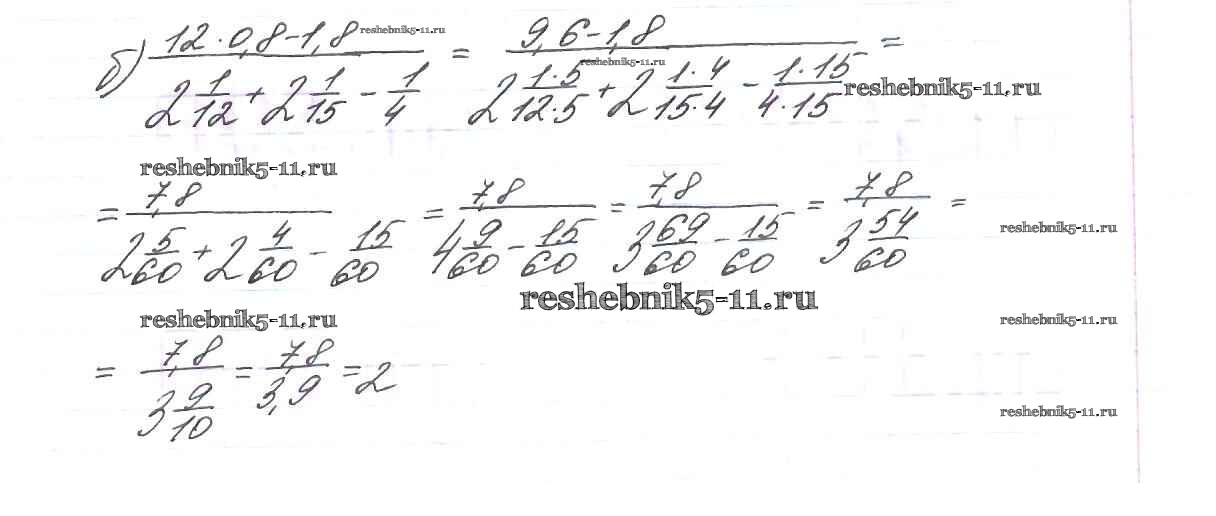 б) (12 · 0,8 - 1,8)/(2 1/12 + 2 1/15 - 1/4) = (9,6 - 1,8)/(2 1·5/12·5 + 2 1·4/15·4 - 1·15/4·15) =
reshebnik5-11.ru
reshebnik5-11.ru
reshebnik5-11.ru
reshebnik5-11.ru
= 7,8/(2 5/60 + 2 4/60 - 15/60) = 7,8/(4 9/60 - 15/60) = 7,8/(3 69/60 - 15/60) = 7,8/(3 54/60) =
reshebnik5-11.ru
reshebnik5-11.ru
reshebnik5-11.ru
reshebnik5-11.ru
= 7,8/(3 9/10) = 7,8/3,9 = 2
reshebnik5-11.ru